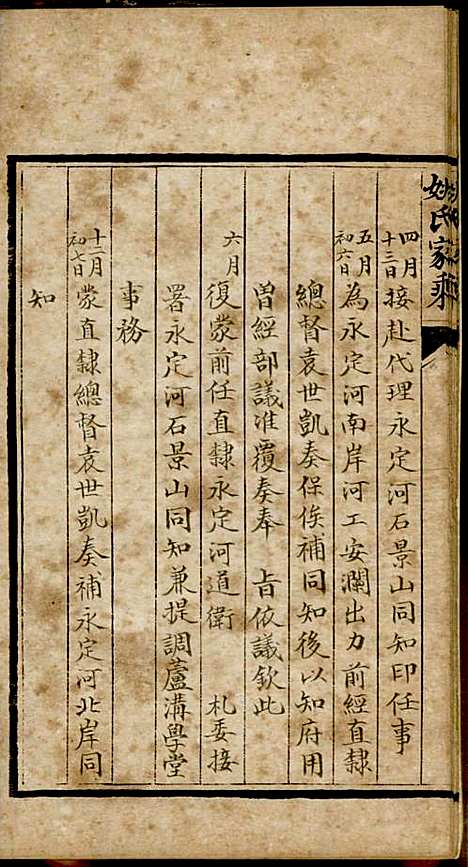 姚氏家乘
四月十三日接赴代理永定河石景山同知印任事
五月初六日為永定河南岸河工安瀾出力前經直隸
總督袁世凱奏保俟補同知後以知府用
曽經部議准覆奏奉 旨依議欽此
六月復蒙前任直隸永定河道衛 札委接
署永定河石景山同知兼提調蘆溝學堂
事務
十二月初七日蒙直隸總督袁世凱奏補永定河北岸同
知